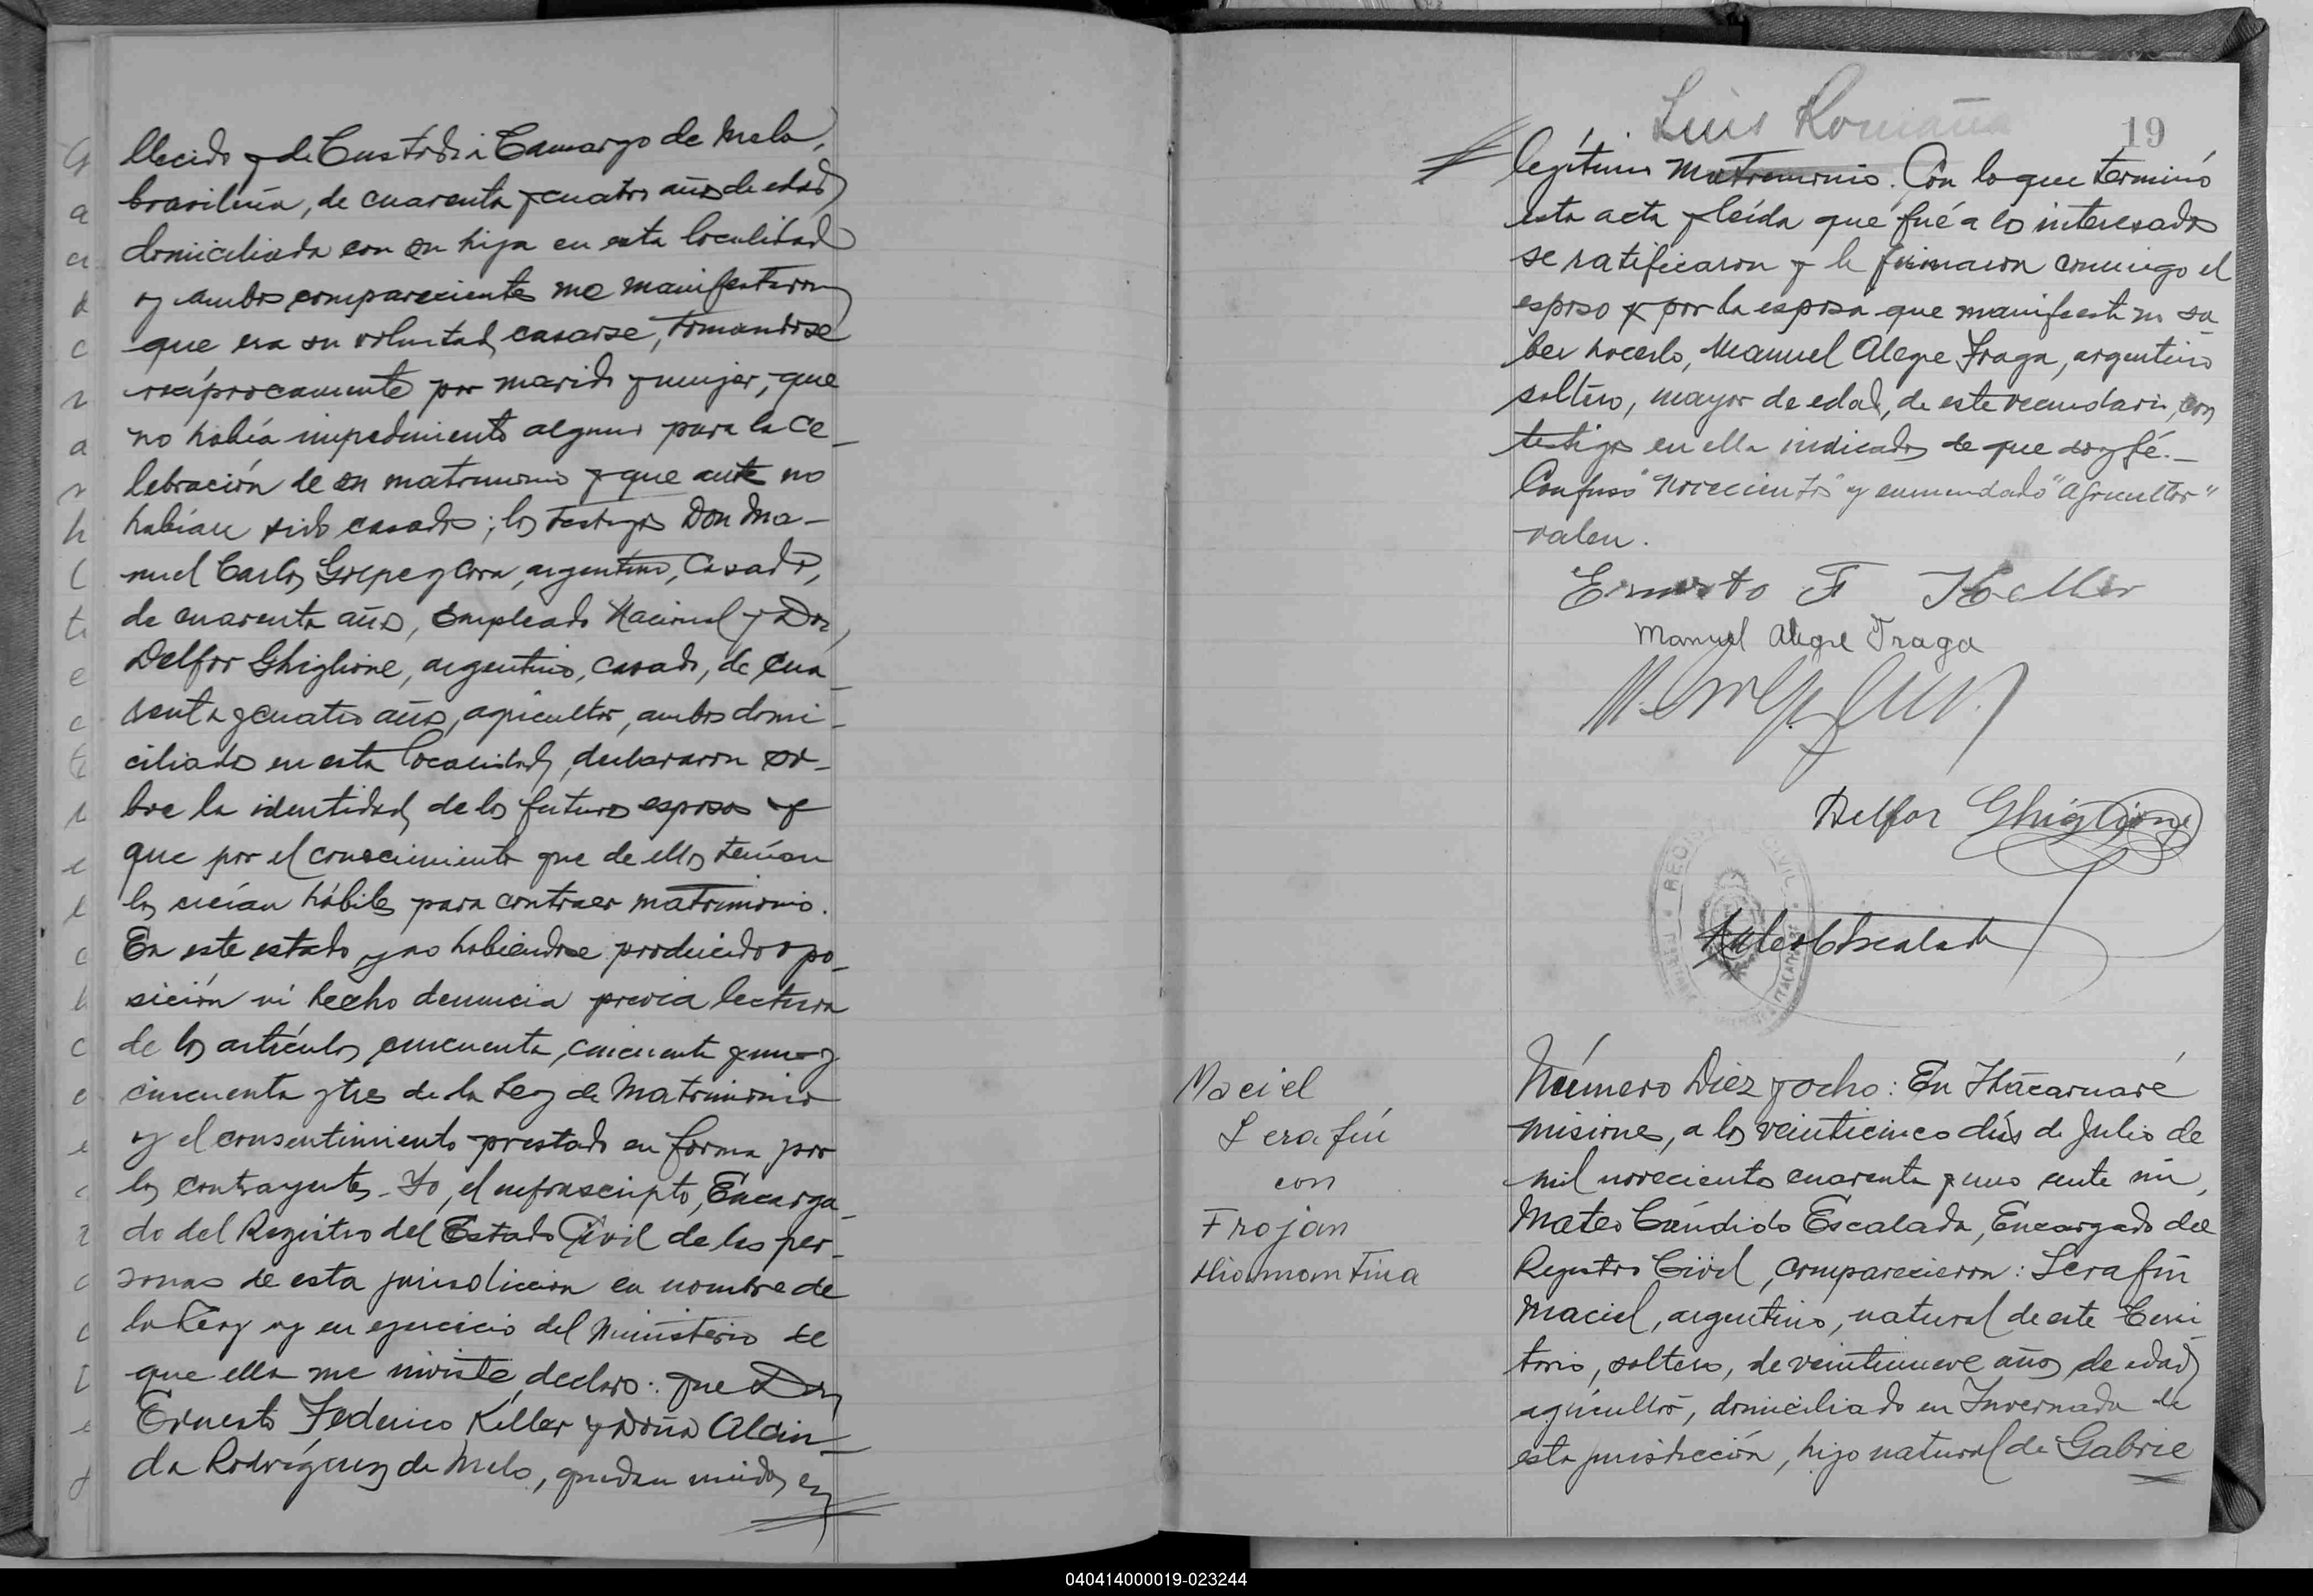 llecido y de Custodia Camargo de Melo,
brasileña, de cuarenta y cuatro años de edad
domiciliada con su hija en esta localidad
y ambos comparecientes me manifestaron
que era su voluntad casarse, tomandose
recíprocamente por marido y mujer, que
no había impedimento alguno para la ce-
lebración de su matrimonio y que ante no
habían sido casados; los testigos Don Ma-
nuel Carlos, argentino, Casado,
de cuarenta años, Empleado Nacional y Don
Delfor Ghiglione, argentino, casado, de cua-
renta y cuatro años, agricultor, ambos domi-
ciliados en esta localidad, declararon so-
bre la identidad de los futuros esposos y
que por el conocimiento que de ellos tenían
los creían hábiles para contraer matrimonio.
En este estado y no habiendose producido opo-
sición ni hecho denuncia previa lectura
de los artículos cincuenta, cincuenta y uno y
cincuenta y tres de la Ley de Matrimonio
y el consentimiento prestado en forma por
los contrayentes. Yo, el infrascripto, Encarga-
do del Registro del Estado Civil de las per-
sonas de esta jurisdiccion en nombre de
la Ley y en ejercicio del Ministerio de
que ella me inviste, declaro: que Don
Ernesto Federico Keller y Doña Alcin-
da Rodríguez de Melo, quedan unidos en
Luis Romaña
19
legítimo Matrimonio. Con lo que terminó
esta acta y leída que fué a los interesados
se ratificaron y la firmaron conmigo el
esposo y por la esposa que manifestó no sa-
ber hacerlo, Manuel Alegre Fraga, argentino
soltero, mayor de edad, de este vecindario, con
testigos en ella indicados de que doy fé.-
Confuso "novecientos" y enmendado "agricultor"
valen.
Ernesto F Keller
Manuel Alegre Fraga
Delfor Ghiglione
Mateo C Escalada
REGISTRO CIVIL
Maciel
Serafín
con
Frojan
Diamantina
Número Diez y ocho: En Itacaruaré
Misiones, a los veinticinco días de Julio de
mil novecientos cuarenta y uno ante mí,
Mateo Cándido Escalada, Encargado del
Registro Civil, comparecieron: Serafín
Maciel, argentino, natural de este Terri-
torio, soltero, de veintinueve años de edad
agricultor, domiciliado en Invernada de
esta jurisdicción, hijo natural de Gabrie
040414000019-023244